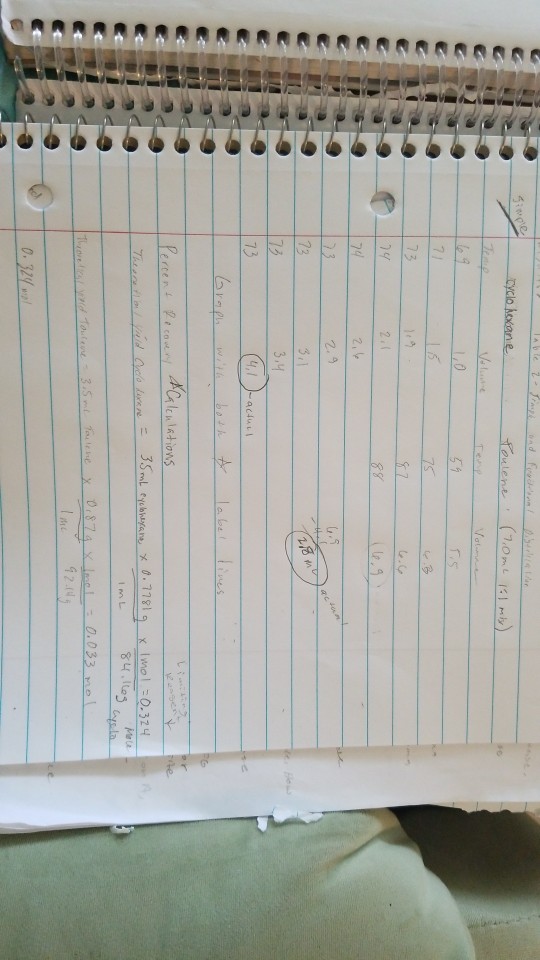 Table 2: Simple and Fractional Distillation
Simple
cyclohexane Toulene (7.0mL 1:1 mix)
Temp Volume Temp Volume
69 1.0 59 5.5
71 1.5 75 6.3
73 1.9 87 6.6
74 2.1 88 (6.9)
74 2.6
73 2.9 6.9
73 3.1 2.8 mL actual
73 3.4
73 4.1 - actual
Graph with both & label lines
Percent Recovery Calculations
Theoretical yield Cyclohexane = 35mL cyclohexane x 0.7781g x 1mol = 0.324
1mL 84.16g
Theoretical yield Toulene = 3.5mL Toulene x 0.87g x 1mol = 0.033 mol
1mL 92.14g
0.324 mol